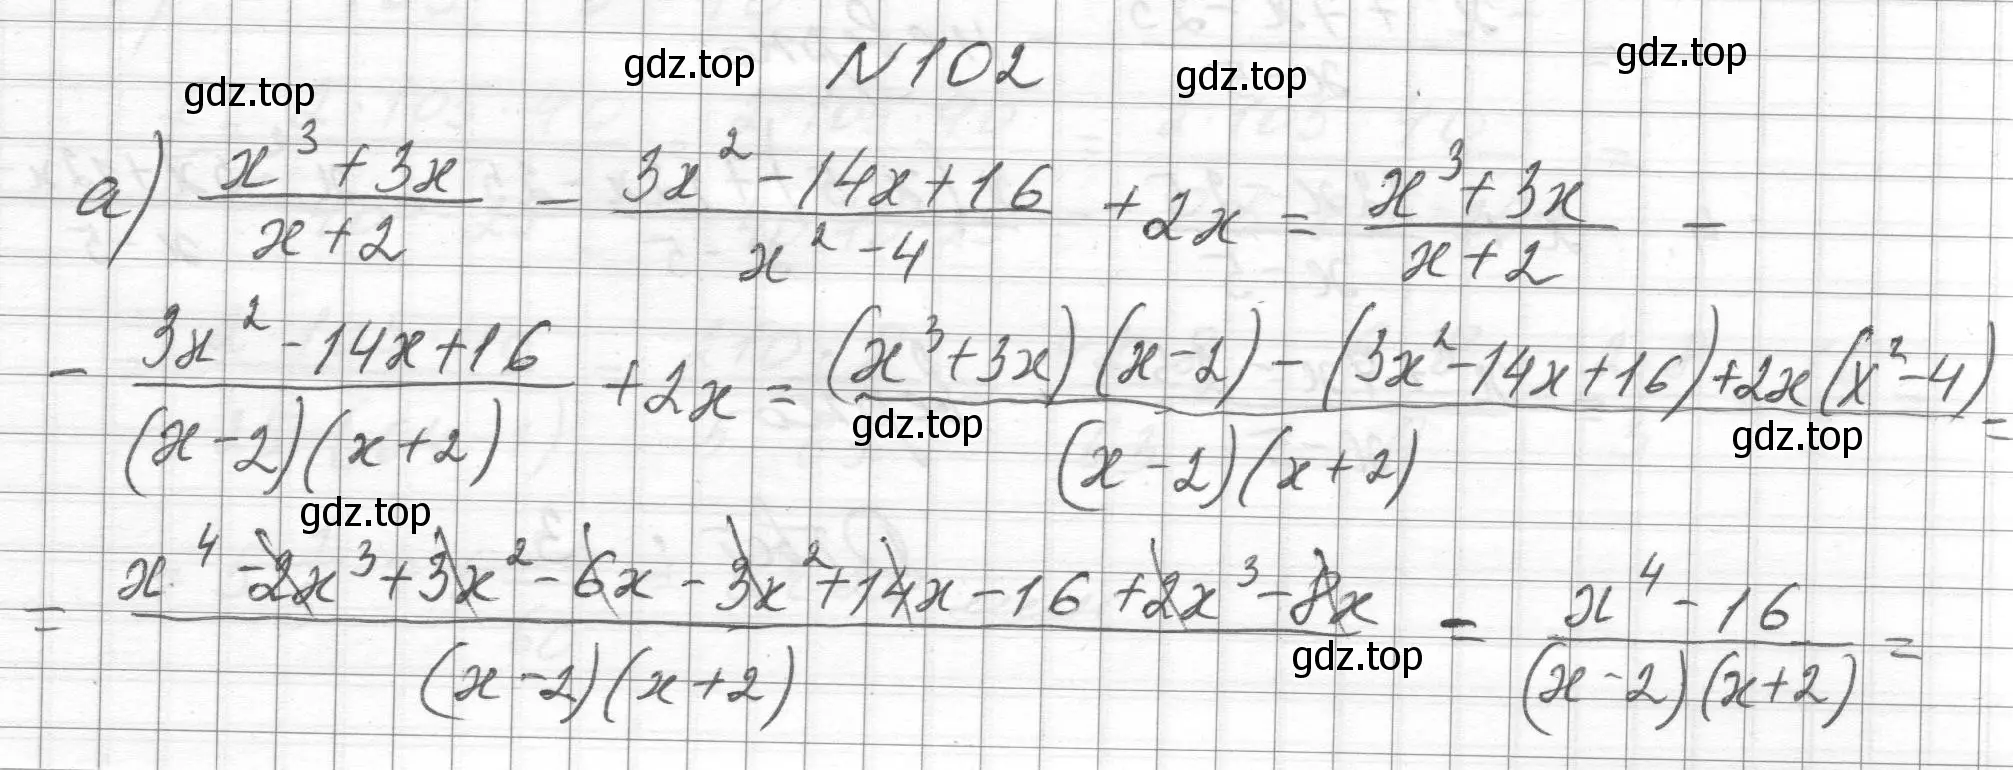 gdz.top gdz.top N102 gdz.top gdz.top
а) (x³+3x)/(x+2) - (3x²-14x+16)/(x²-4) +2x = (x³+3x)/(x+2) -
- (3x²-14x+16)/((x-2)(x+2)) +2x = ((x³+3x)(x-2)-(3x²-14x+16)+2x(x²-4))/((x-2)(x+2)) =
gdz.top gdz.top
gdz.top
= (x⁴-2x³+3x²-6x-3x²+14x-16+2x³-8x)/((x-2)(x+2)) = (x⁴-16)/((x-2)(x+2)) =
gdz.top